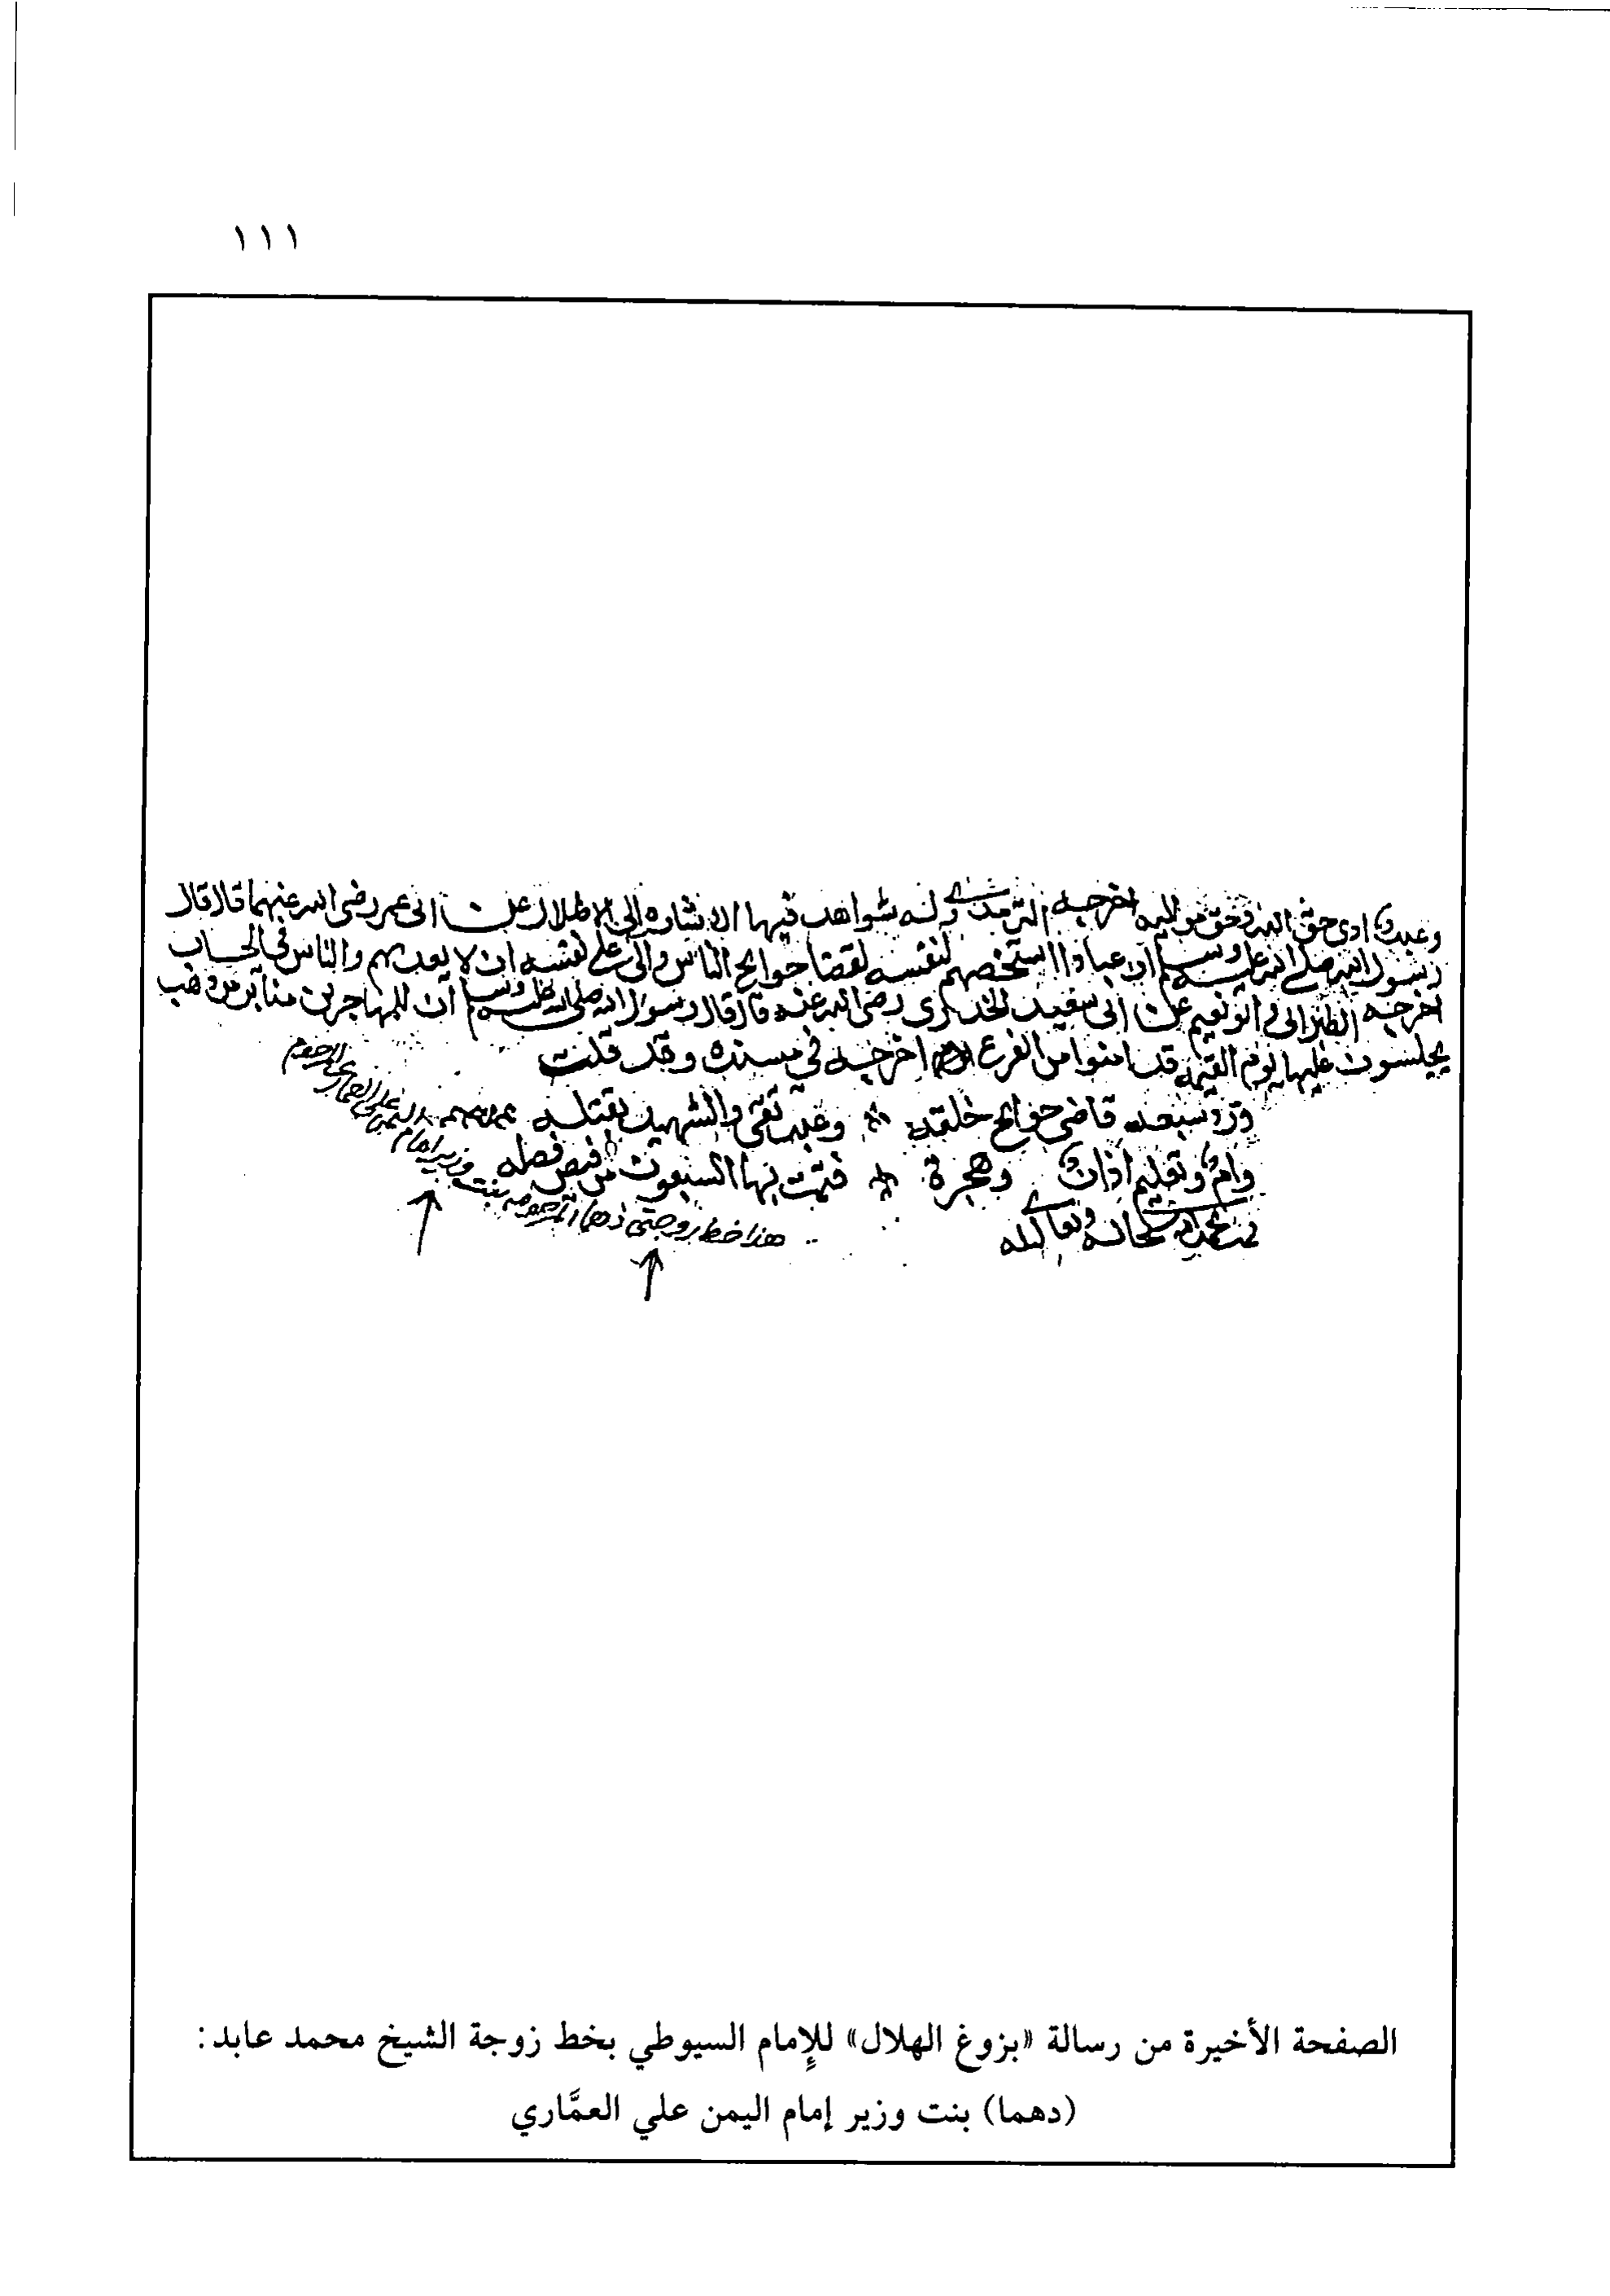 ١١١
وعبد ادى حق الله وحق مواليه اخرجه الترمذي وله شواهد فيها الاشاره الى الاظلال عن ابى عمر رضى الله عنهما قال قال
رسول الله صلى الله عليه وسلم ان عبادا استخصهم لنفسه لقضا حوايج الناس والى على نفسه ان لا يعذبهم والناس فى الحساب
اخرجه الطبرانى وابو نعيم عن ابى سعيد الخدرى رضى الله عنه قال قال رسول الله صلى الله عليه وسلم ان للمهاجرين منابر من ذهب
يجلسون عليها يوم القيمه قد امنوا من الفزع اخرجه فى مسنده وقد قلت
وزد سبعه قاضى حوايج خلقه وعبد تقى والشهيد بقتله
وام وتعليم اذان وهجرة فتمت بها السبعون من فيض فضله
تمت بحمد الله سبحانه وتعالى
هذا خط زوجتى دهما المرحومه بنت وزير امام اليمن على العمارى
الصفحة الأخيرة من رسالة «بزوغ الهلال» للإمام السيوطي بخط زوجة الشيخ محمد عابد:
(دهما) بنت وزير إمام اليمن علي العمَّاري